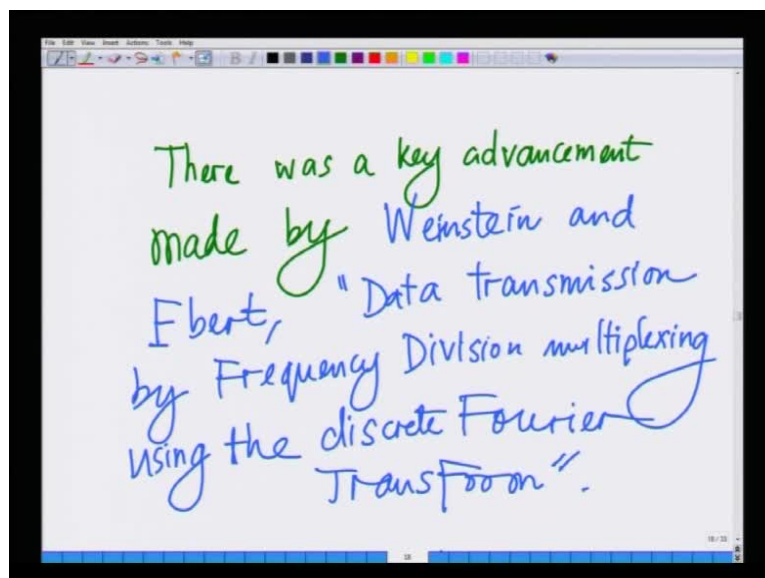 File Edit View Insert Actions Tools Help
There was a key advancement
made by Weinstein and
Ebert, "Data transmission
by Frequency Division multiplexing
using the discrete Fourier
Transform".
18/33
18